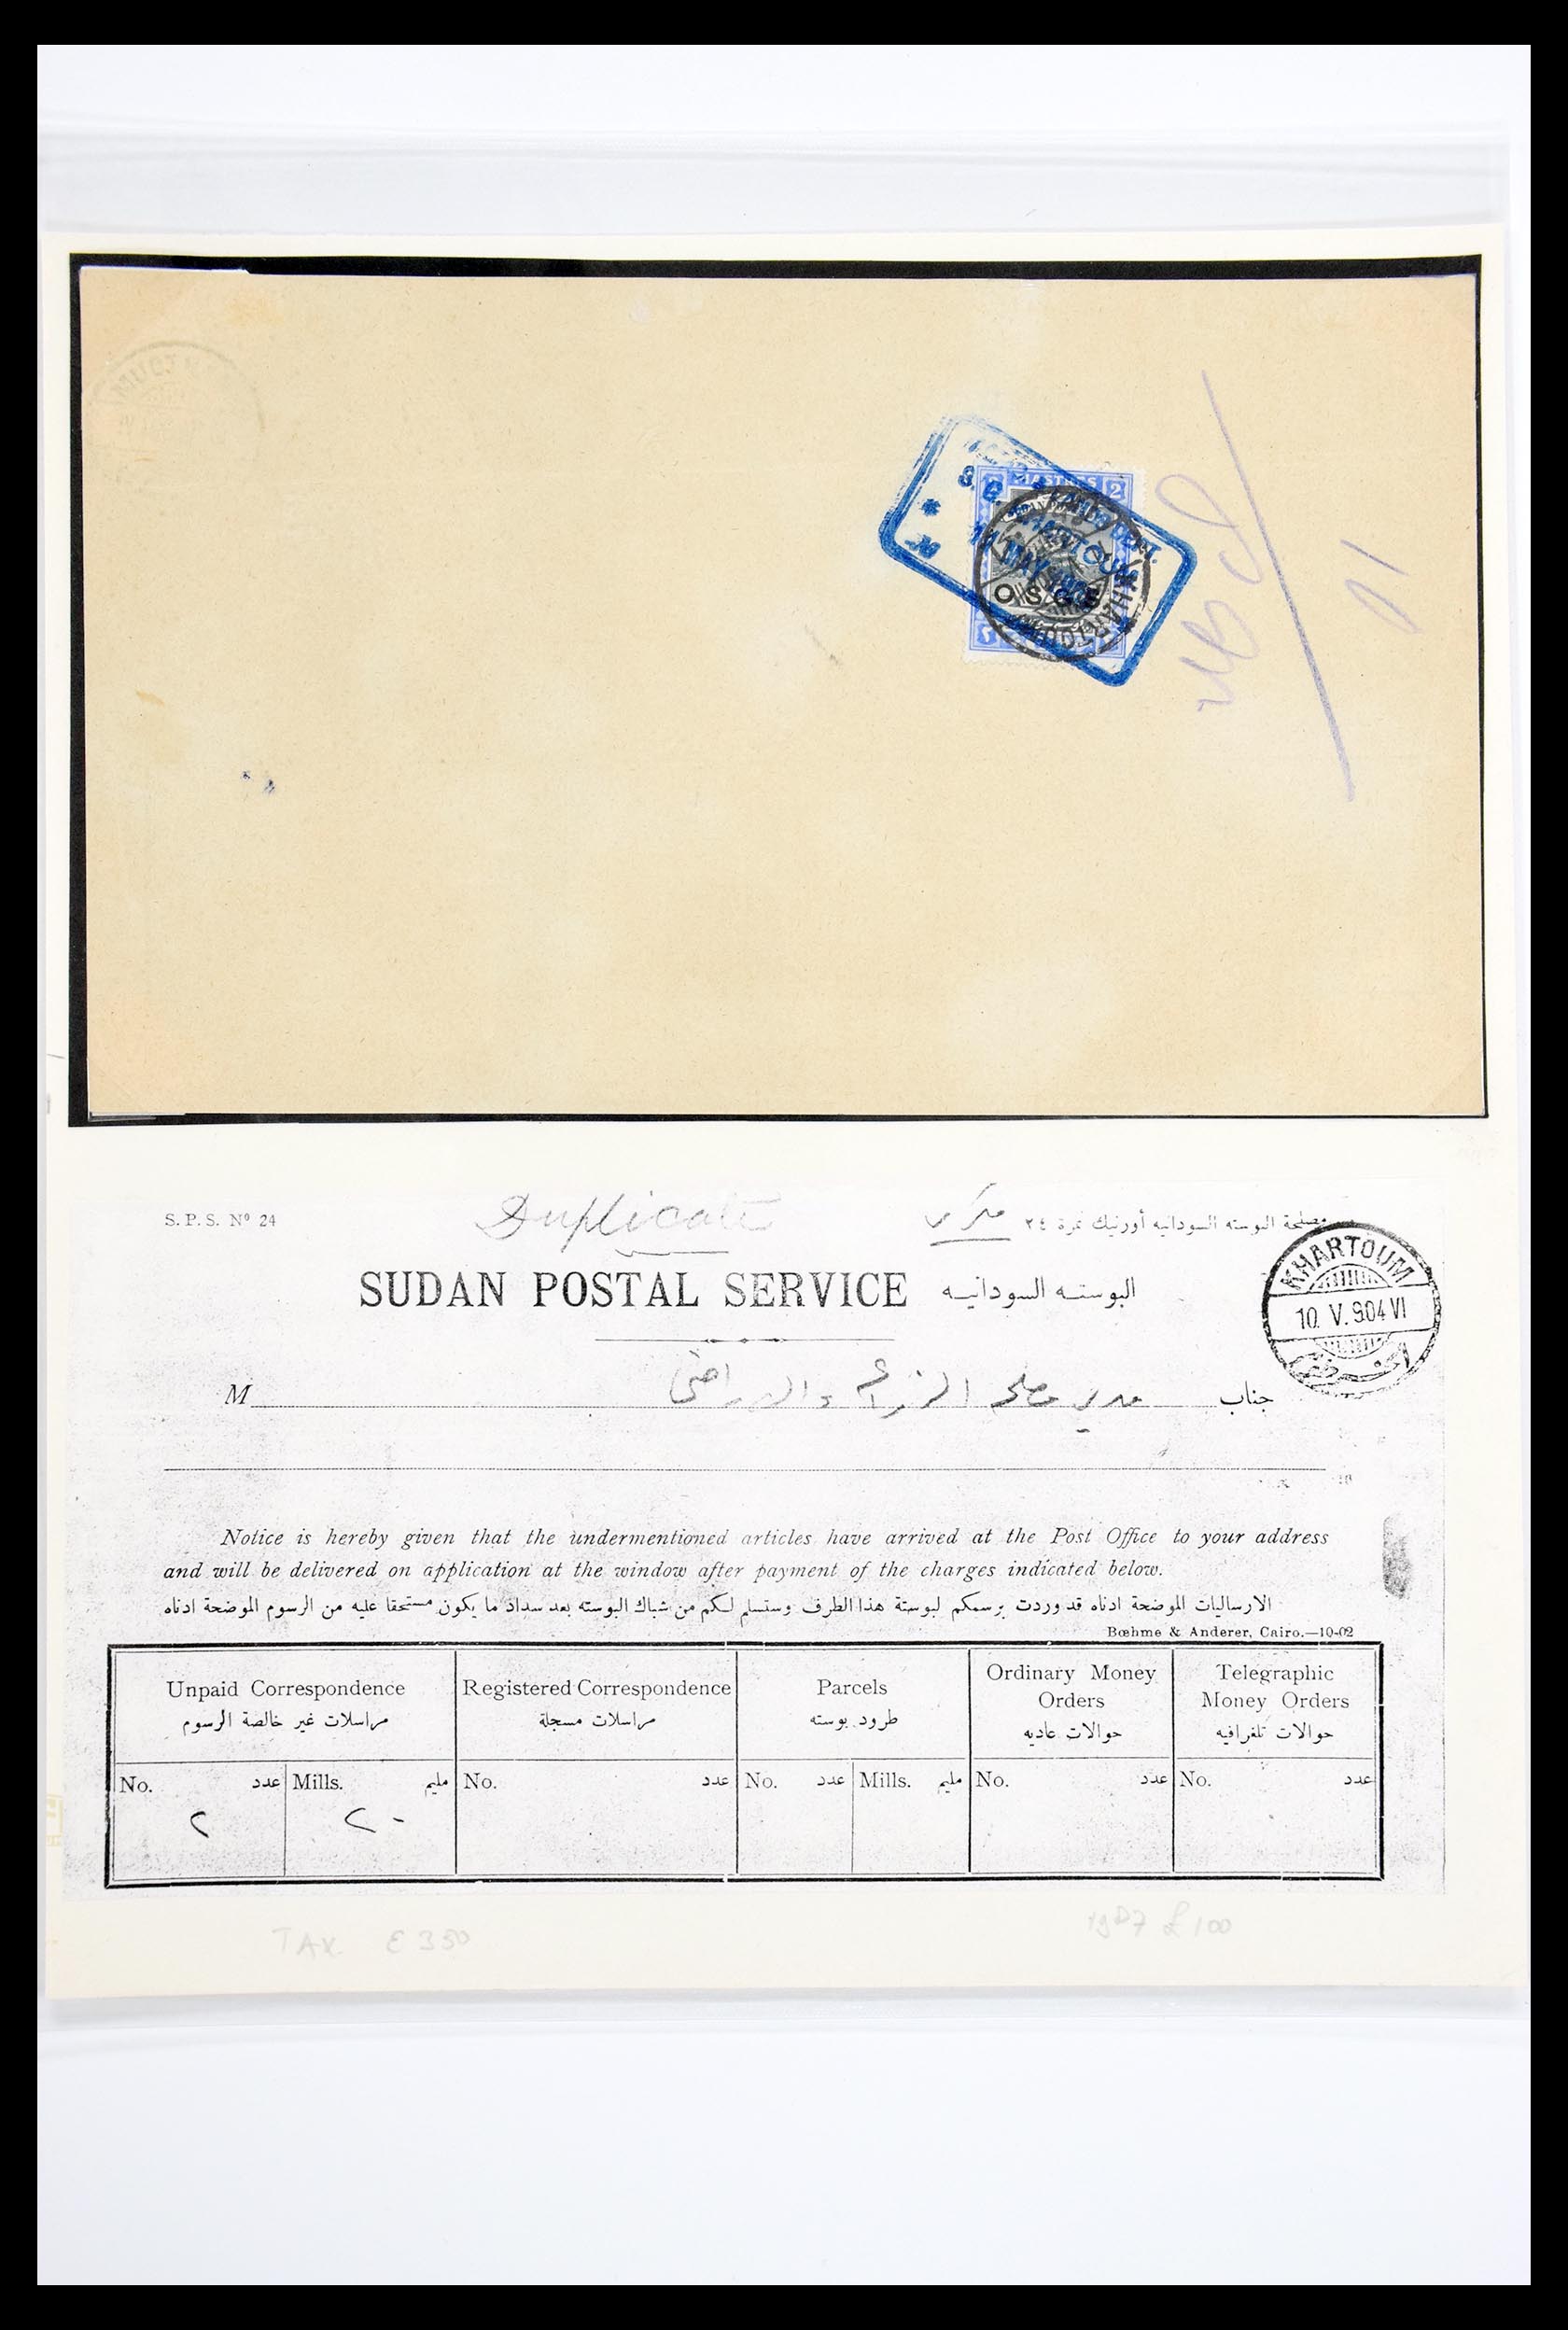 PIASTRES 2
S. G. LANDS DEPT.
KHARTOUM
11 MAY 190
O S G S
KHARTOUM
10
S. P. S. Nº 24
Duplicate
مكرر
مصلحة البوسته السودانيه أورنيك نمرة ٢٤
SUDAN POSTAL SERVICE البوسته السودانيه
KHARTOUM
10. V. 904 VI
الخرطوم
M مدير مصلحة الزراعه والاراضى جناب
Notice is hereby given that the undermentioned articles have arrived at the Post Office to your address
and will be delivered on application at the window after payment of the charges indicated below.
الارساليات الموضحة ادناه قد وردت برسمكم لبوستة هذا الطرف وستسلم لكم من شباك البوسته بعد سداد ما يكون مستحقا عليه من الرسوم الموضحة ادناه
Bœhme & Anderer, Cairo.—10-02
Unpaid Correspondence
مراسلات غير خالصة الرسوم
Registered Correspondence
مراسلات مسجلة
Parcels
طرود بوسته
Ordinary Money
Orders
حوالات عاديه
Telegraphic
Money Orders
حوالات تلغرافيه
No. عدد Mills. مليم No. عدد No. عدد Mills. مليم No. عدد No. عدد
٢ ٢٠
TAX £350
£100